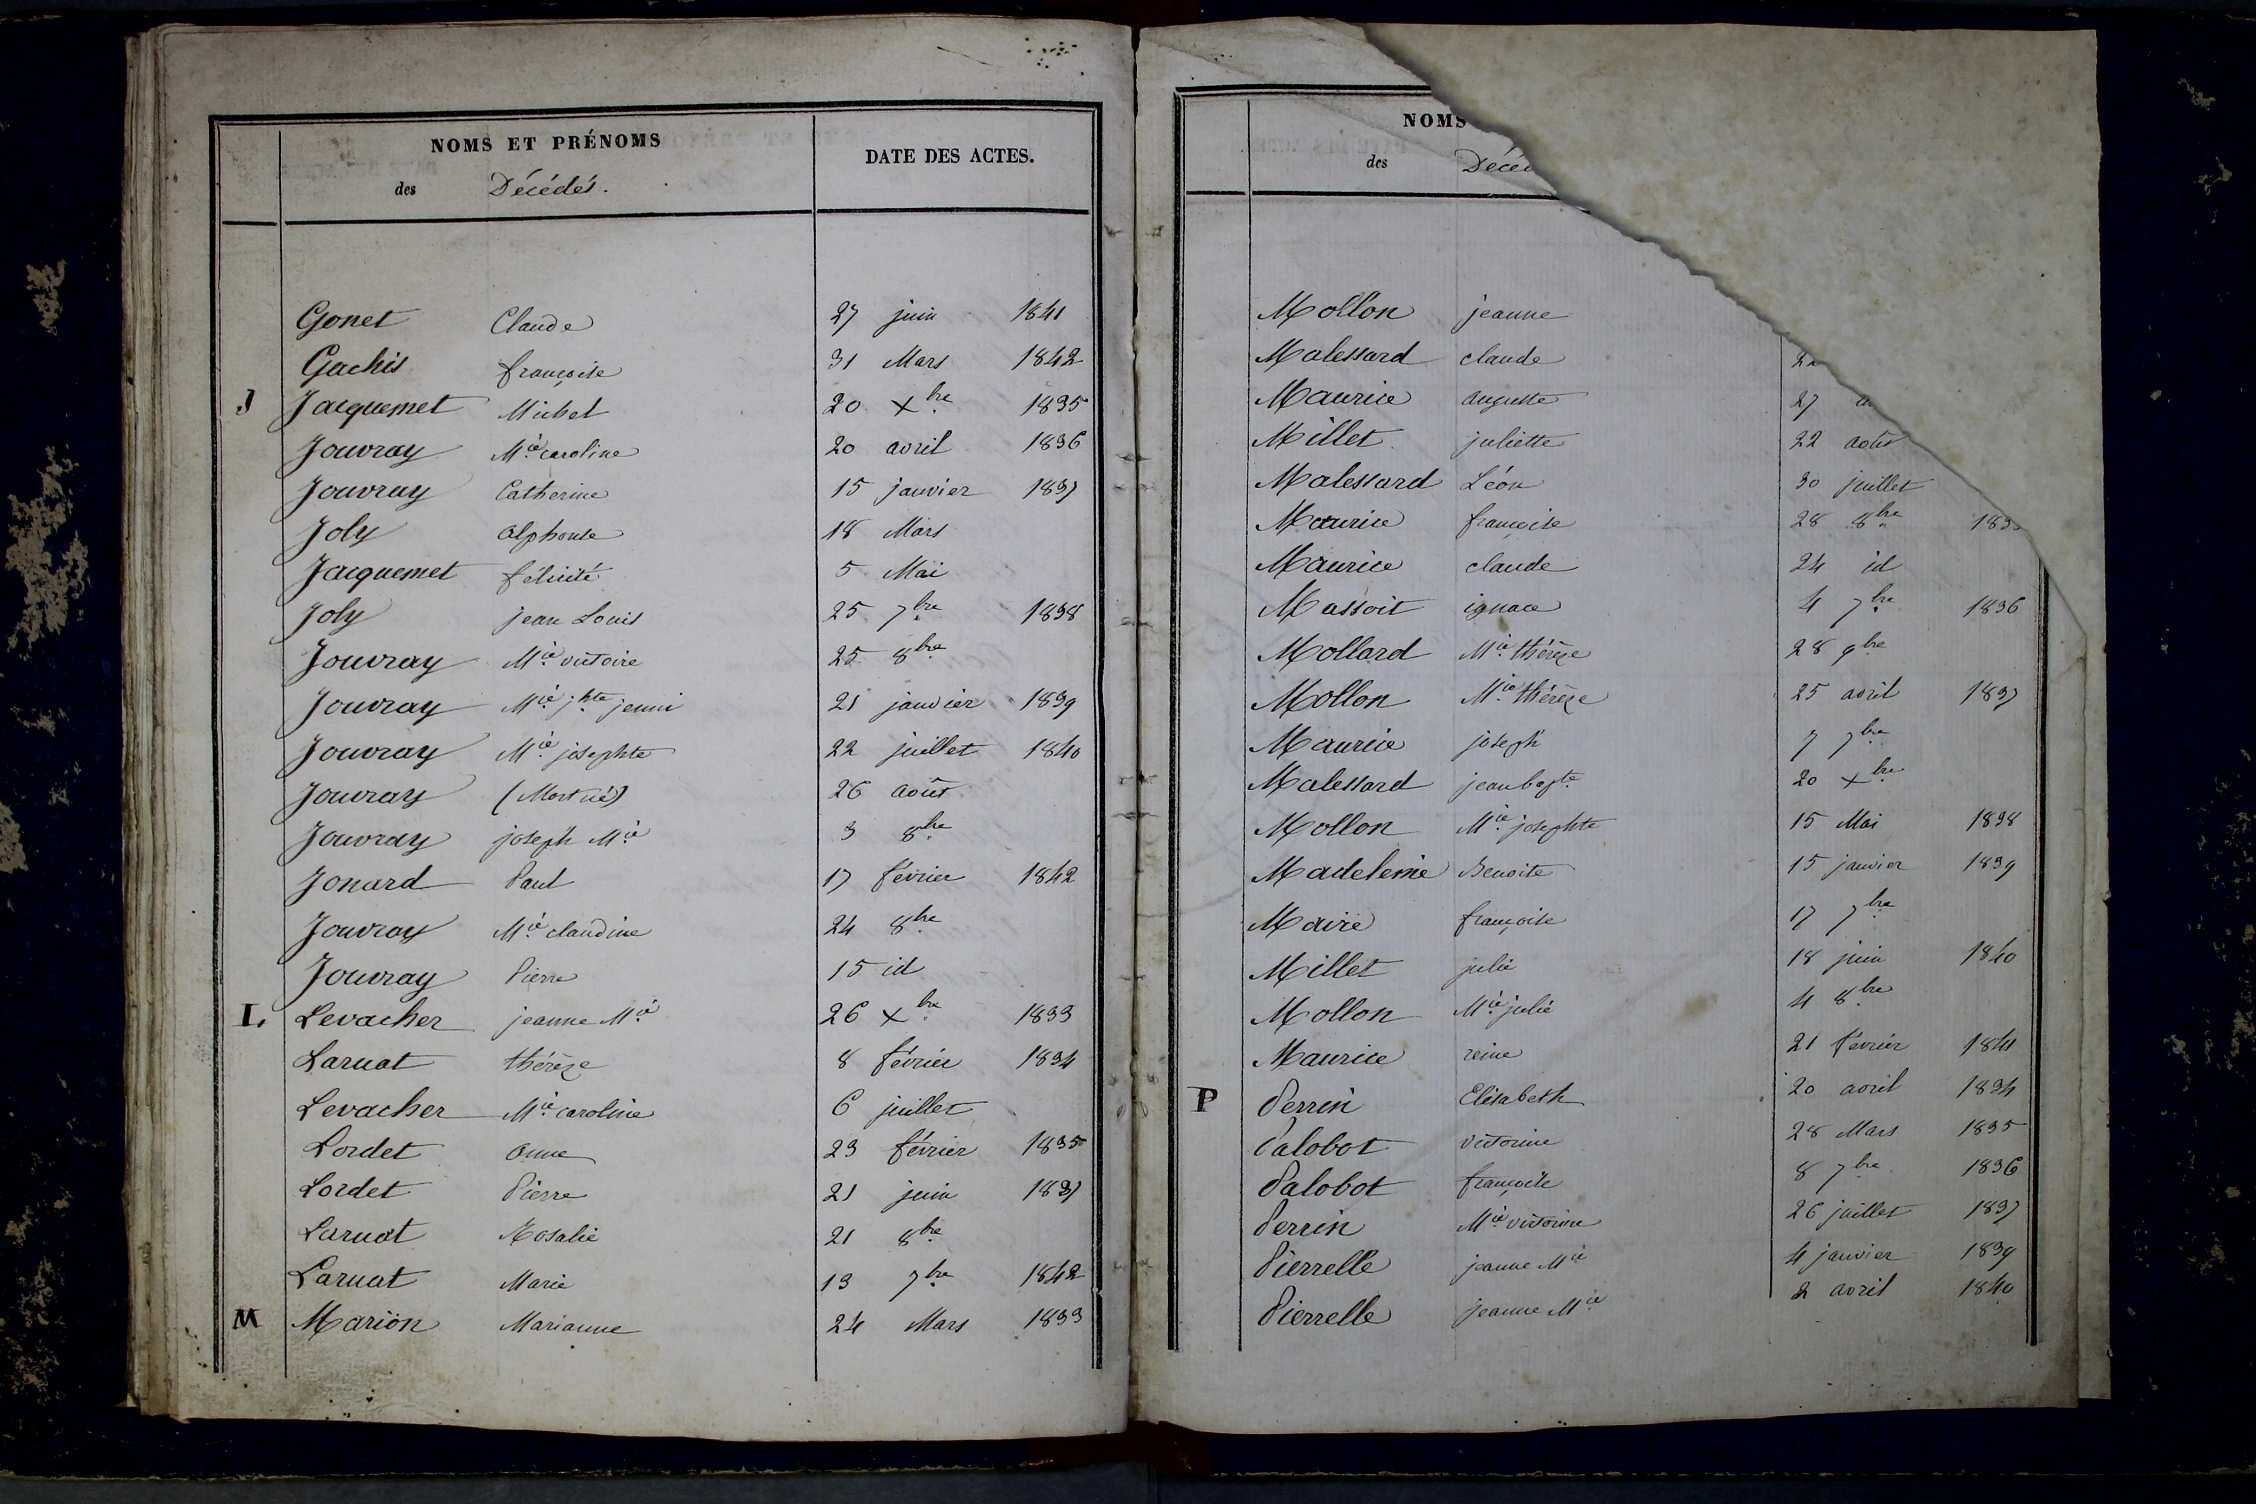 NOMS ET PRÉNOMS
des Décédés.
DATE DES ACTES.
Gonet Claude 27 juin 1841
Gachis françoise 31 Mars 1842
J Jacquemet Michel 20 Xbre 1835
Jouvray Mie caroline 20 avril 1836
Jouvray Catherine 15 janvier 1837
Joly alphonse 18 Mars
Jacquemet félicité 5 Mai
Joly jean Louis 25 7bre 1838
Jouvray Mie victoire 25 8bre
Jouvray Mie jhte jenni 21 janvier 1839
Jouvray Mie josephte 22 juillet 1840
Jouvray (Mort né) 26 août
Jouvray joseph Mie 3 8bre
Jonard Paul 17 février 1842
Jouvray Mie claudine 24 8bre
Jouvray Pierre 15 id
L. Levacher jeanne Mie 26 Xbre 1833
Laruat thérèze 8 février 1834
Levacher Mie caroline 6 juillet
Lordet anne 23 février 1835
Lordet Pierre 21 juin 1837
Laruat Rosalie 21 8bre
Laruat Marie 13 7bre 1842
M Marion Marianne 24 Mars 1833
NOMS
des Décéd
Mollon jeanne
Malessard claude 22
Maurice auguste 27
Millet juliette 22 août
Malessard Léon 30 juillet
Maurice françoise 28 8bre 183
Maurice claude 24 id
Massoit ignace 4 7bre 1836
Mollard Mie thérèze 28 9bre
Mollon Mie thérèze 25 avril 1837
Maurice joseph 7 7bre
Malessard jean bapte 20 Xbre
Mollon Mie josephte 15 Mai 1838
Madeleine Benoite 15 janvier 1839
Maire françoise 17 7bre
Millet julie 18 juin 1840
Mollon Mie julie 4 8bre
Maurice reine 21 février 1841
P Perrin Elisabeth 20 avril 1834
Palobot victorine 28 Mars 1835
Palobot françoise 8 7bre 1836
Perrin Mie victorine 26 juillet 1837
Pierrelle jeanne Mie 4 janvier 1839
Pierrelle jeanne Mie 2 avril 1840